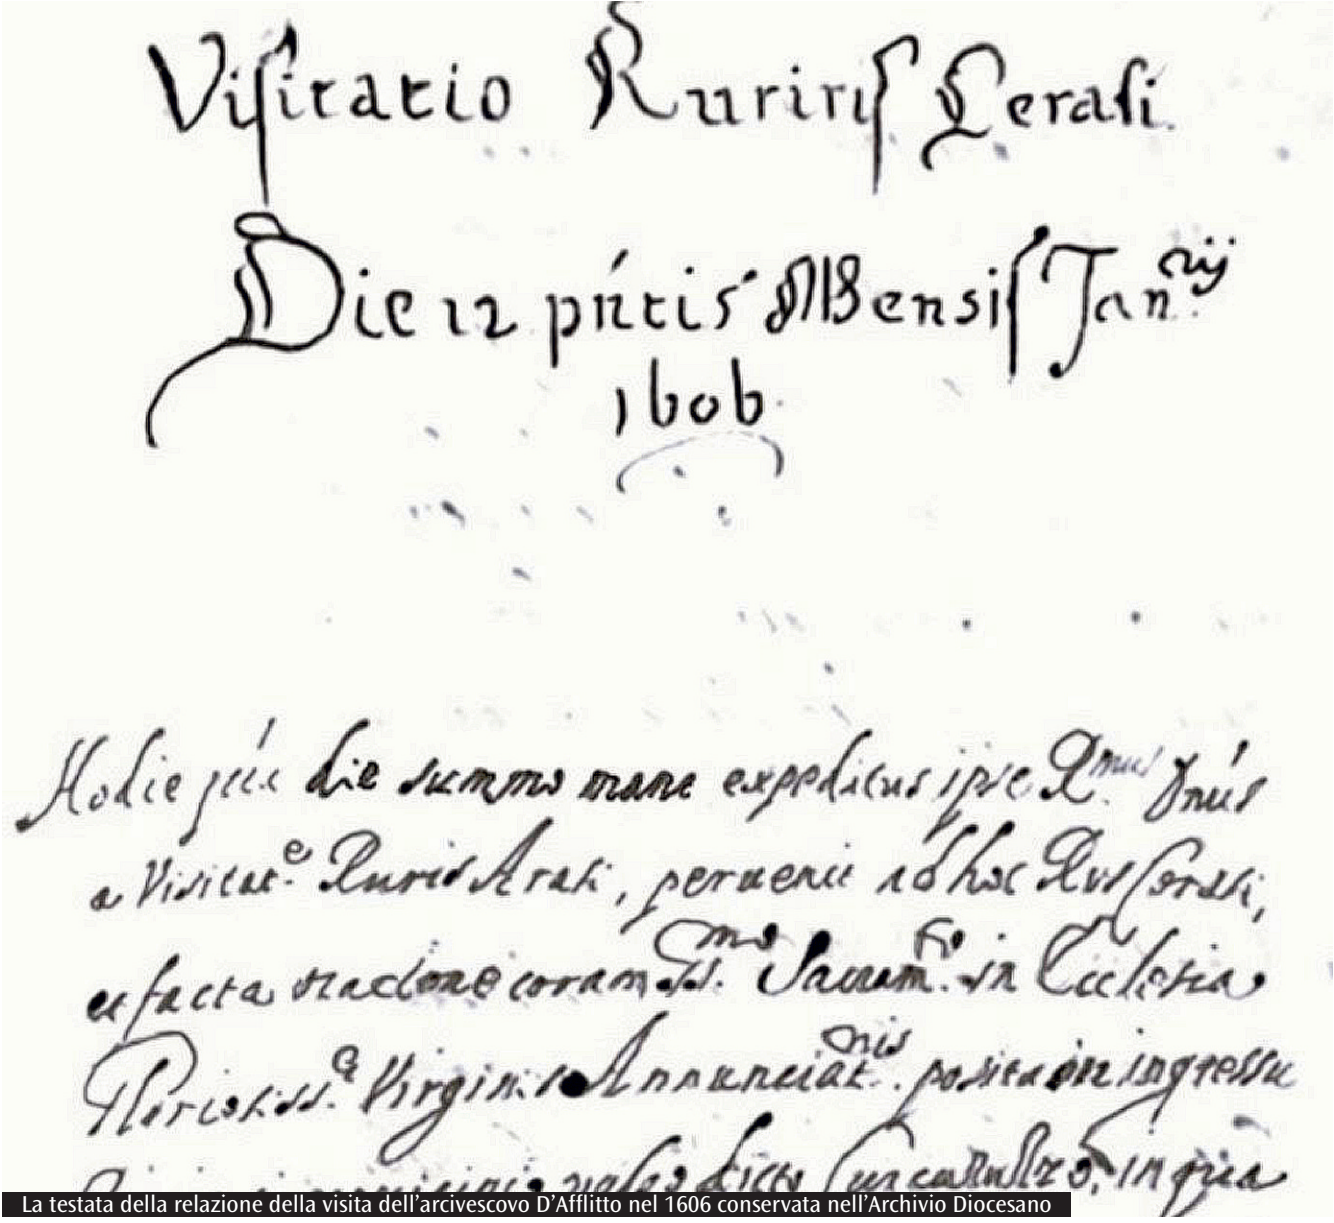 Visitatio Ruriris Cerasi.
Die 12 pñtis Mensis Jan.rij
1606
Hodie die summo mane expeditus ipse R.mus Dñus
a Visitat.e Ruris Arasi, pervenit ad hoc Rus Cerasi,
et facta oratione coram SS.mo Sacram.to in Ecclesia
Gloriosiss.e Virginis Annunciat.nis posita in ingressu
dicto in qua
La testata della relazione della visita dell'arcivescovo D'Afflitto nel 1606 conservata nell'Archivio Diocesano